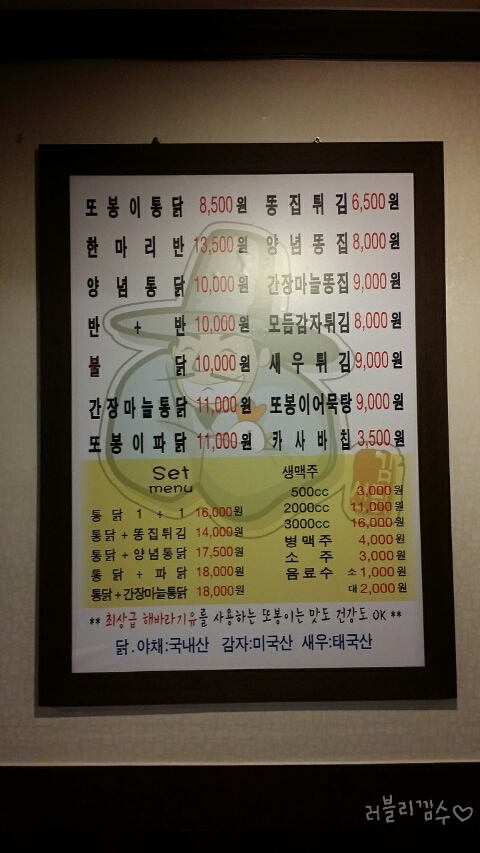 또봉이통닭 8,500원 똥집튀김 6,500원
한마리반 13,500원 양념똥집 8,000원
양념통닭 10,000원 간장마늘똥집 9,000원
반+반 10,000원 모듬감자튀김 8,000원
불닭 10,000원 새우튀김 9,000원
간장마늘통닭 11,000원 또봉이어묵탕 9,000원
또봉이파닭 11,000원 카사바칩 3,500원
Set menu
통닭 1+1 16,000원
통닭+똥집튀김 14,000원
통닭+양념통닭 17,500원
통닭+파닭 18,000원
통닭+간장마늘통닭 18,000원
생맥주
500cc 3,000원
2000cc 11,000원
3000cc 16,000원
병맥주 4,000원
소주 3,000원
음료수 소 1,000원
대 2,000원
** 최상급 해바라기유를 사용하는 또봉이는 맛도 건강도 OK **
닭.야채:국내산 감자:미국산 새우:태국산
러블리낌수♡